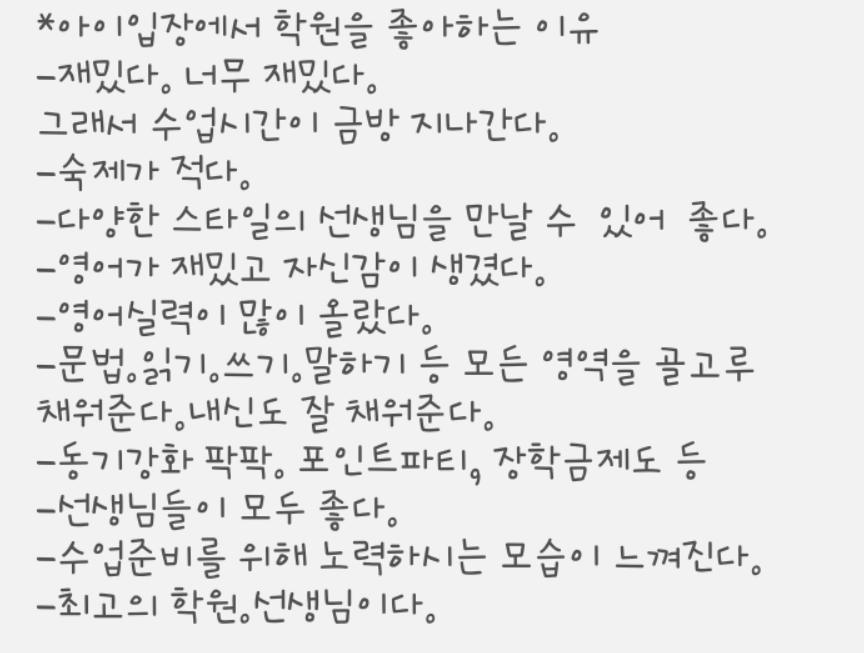 *아이입장에서 학원을 좋아하는 이유
-재밌다. 너무 재밌다.
그래서 수업시간이 금방 지나간다.
-숙제가 적다.
-다양한 스타일의 선생님을 만날 수 있어 좋다.
-영어가 재밌고 자신감이 생겼다.
-영어실력이 많이 올랐다.
-문법.읽기.쓰기.말하기 등 모든 영역을 골고루
채워준다.내신도 잘 채워준다.
-동기강화 팍팍. 포인트파티, 장학금제도 등
-선생님들이 모두 좋다.
-수업준비를 위해 노력하시는 모습이 느껴진다.
-최고의 학원.선생님이다.